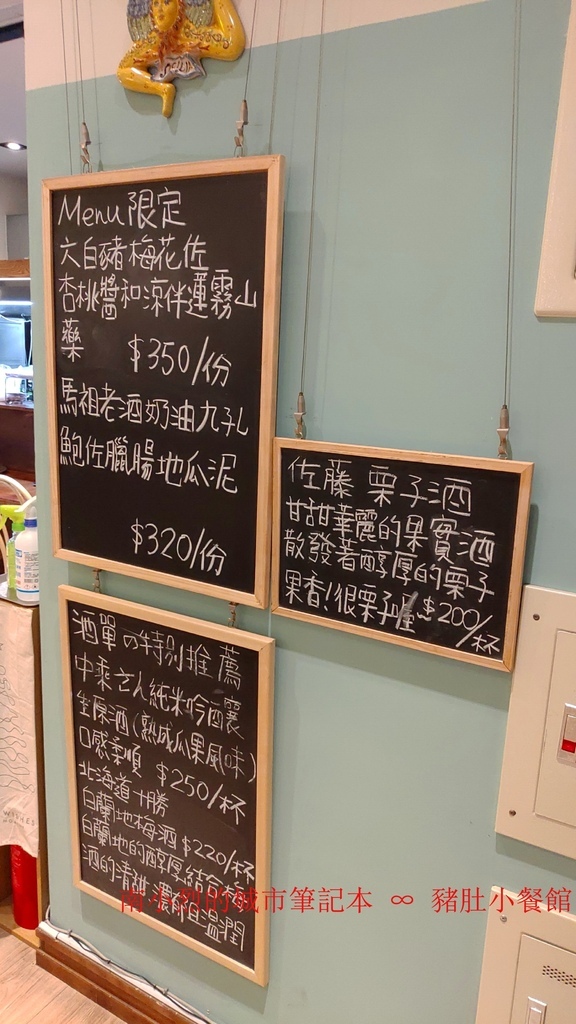 SICILIA
Menu 限定
六白豬梅花佐
杏桃醬和涼伴蓮霧山
藥 $350/份
馬祖老酒奶油九孔
鮑佐臘腸地瓜泥
$320/份
佐藤 栗子酒
甘甜華麗的果實酒
散發著醇厚的栗子
果香!很栗子喔~$200/杯
酒單の特別推薦
中乘さん純米吟釀
生原酒(熟成瓜果風味)
口感柔順 $250/杯
北海道十勝
白蘭地梅酒 $220/杯
白蘭地的醇厚結合梅
酒的清甜 濃郁且溫潤
南小烈的城市筆記本 ∞ 豬肚小餐館